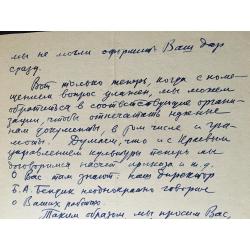 мы не могли оформить Ваш дар
сразу.
Вот только теперь, когда с поме-
щением вопрос улажен, мы можем
обратиться в соответствующие органи-
зации, чтобы отпечатать нужные
нам документы, в том числе и гра-
моты. Думаем, что и с Краевым
управлением культуры теперь мы
договоримся насчет приказа и т.д.
О Вас там знают: наш директор
Б.А. неоднократно говорил
о Ваших работах.
Таким образом мы просим Вас,